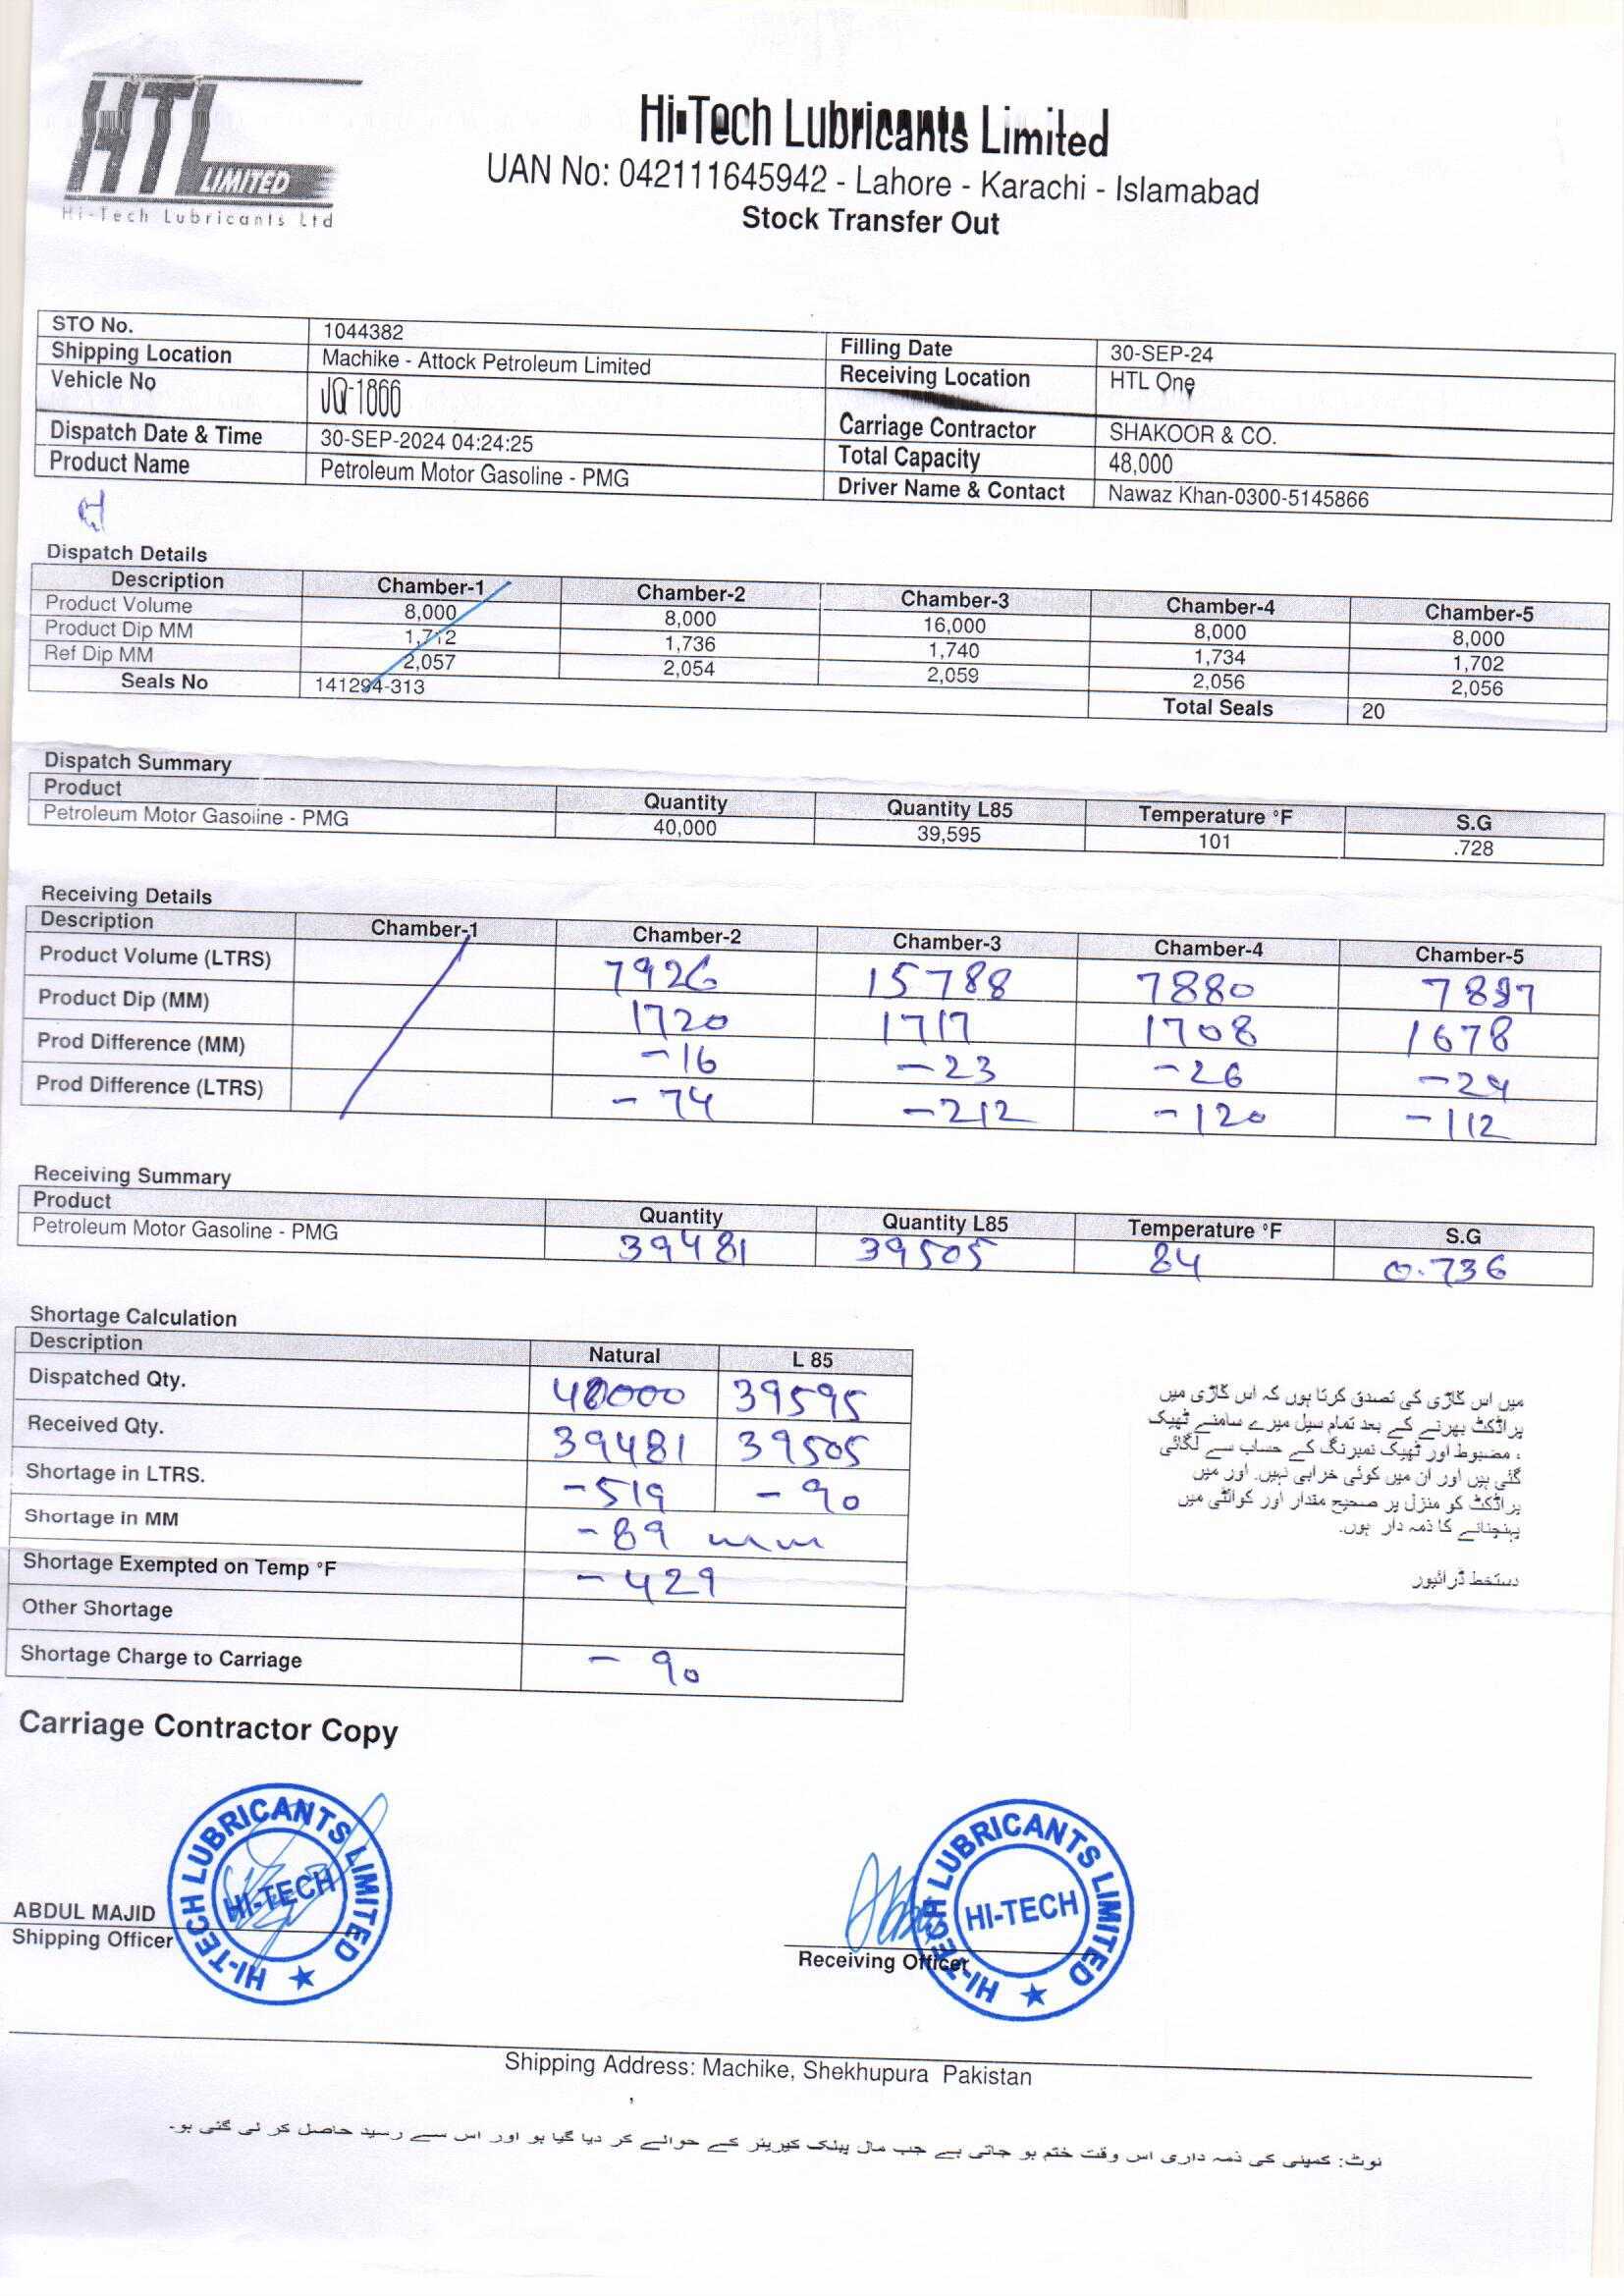 HTL
LIMITED
Hi-Tech Lubricants Ltd
Hi-Tech Lubricants Limited
UAN No: 042111645942 - Lahore - Karachi - Islamabad
Stock Transfer Out
STO No. 1044382 Filling Date 30-SEP-24
Shipping Location Machike - Attock Petroleum Limited Receiving Location HTL One
Vehicle No JQ-1866 Carriage Contractor SHAKOOR & CO.
Dispatch Date & Time 30-SEP-2024 04:24:25 Total Capacity 48,000
Product Name Petroleum Motor Gasoline - PMG Driver Name & Contact Nawaz Khan-0300-5145866
Dispatch Details
Description Chamber-1 Chamber-2 Chamber-3 Chamber-4 Chamber-5
Product Volume 8,000 8,000 16,000 8,000 8,000
Product Dip MM 1,712 1,736 1,740 1,734 1,702
Ref Dip MM 2,057 2,054 2,059 2,056 2,056
Seals No 141294-313 Total Seals 20
Dispatch Summary
Product Quantity Quantity L85 Temperature °F S.G
Petroleum Motor Gasoline - PMG 40,000 39,595 101 .728
Receiving Details
Description Chamber-1 Chamber-2 Chamber-3 Chamber-4 Chamber-5
Product Volume (LTRS) 7926 15788 7880
Product Dip (MM) 1720 1717 1708 1678
Prod Difference (MM) -16 -23 -26 -24
Prod Difference (LTRS) -74 -212 -120 -112
Receiving Summary
Product Quantity Quantity L85 Temperature °F S.G
Petroleum Motor Gasoline - PMG 39481 39505 84 0.736
Shortage Calculation
Description Natural L 85
Dispatched Qty. 40000 39595
Received Qty. 39481 39505
Shortage in LTRS. -519 -90
Shortage in MM -89 mm
Shortage Exempted on Temp °F -429
Other Shortage
Shortage Charge to Carriage -90
میں اس گاڑی کی تصدق کرتا ہوں کہ اس گاڑی میں
پراڈکٹ بھرنے کے بعد تمام سیل میرے سامنے ٹھیک
، مضبوط اور ٹھیک نمبرنگ کے حساب سے لگائی
گئی ہیں اور ان میں کوئی خرابی نہیں۔ اور میں
پراڈکٹ کو منزل پر صحیح مقدار اور کوالٹی میں
پہنچانے کا ذمہ دار ہوں۔
دستخط ڈرائیور
Carriage Contractor Copy
HI-TECH LUBRICANTS LIMITED
HI-TECH
ABDUL MAJID
Shipping Officer
HI-TECH LUBRICANTS LIMITED
HI-TECH
Receiving Officer
Shipping Address: Machike, Shekhupura Pakistan
نوٹ: کمپنی کی ذمہ داری اس وقت ختم ہو جاتی ہے جب مال پبلک کیریئر کے حوالے کر دیا گیا ہو اور اس سے رسید حاصل کر لی گئی ہو۔